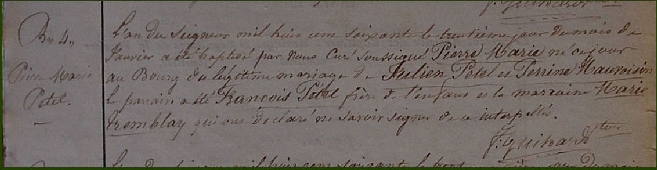 B. 4.
Pierre Marie
Petel.
L'an du Seigneur mil huit cent soixante le trentième jour du mois de
Janvier a été baptisé par nous Curé soussigné Pierre Marie né ce jour
au Bourg du légitime mariage de Julien Petel et Perrine Mauvoisin
le parrain a été François Petel frère de l'enfant et la marraine Marie
Tremblay qui ont déclaré ne savoir signer de ce interpellés.
J. Guihard